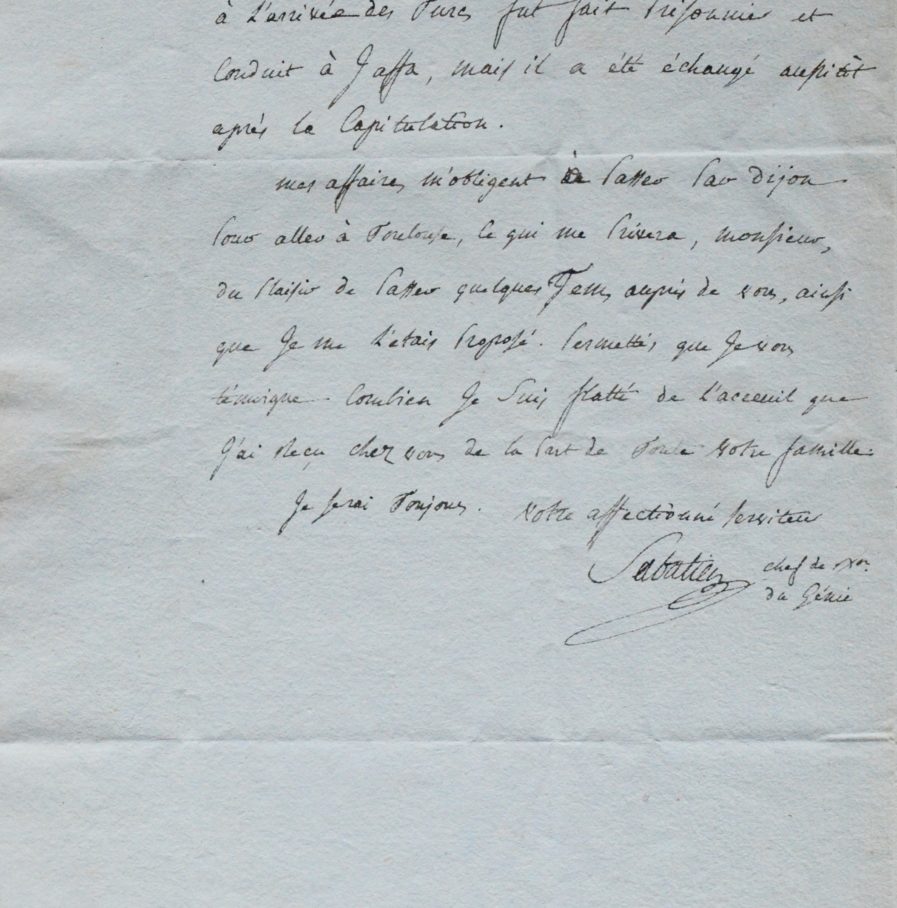 à l'arrivée des Turcs fut fait Prisonnier et
Conduit à Jaffa, mais il a été échangé aussitôt
après la Capitulation.
mes affaires m'obligent à Passer Par dijon
Pour aller à Toulouse, ce qui me Privera, monsieur,
du Plaisir de Passer quelques Tems auprès de vous, ainsi
que Je me l'étais Proposé. Permettés que Je vous
témoigne Combien Je Suis flatté de l'acceuil que
J'ai Reçu chez vous de la Part de Toute votre famille.
Je Serai Toujours. votre affectionné Serviteur
Sabatier chef de Bon.
du Génie